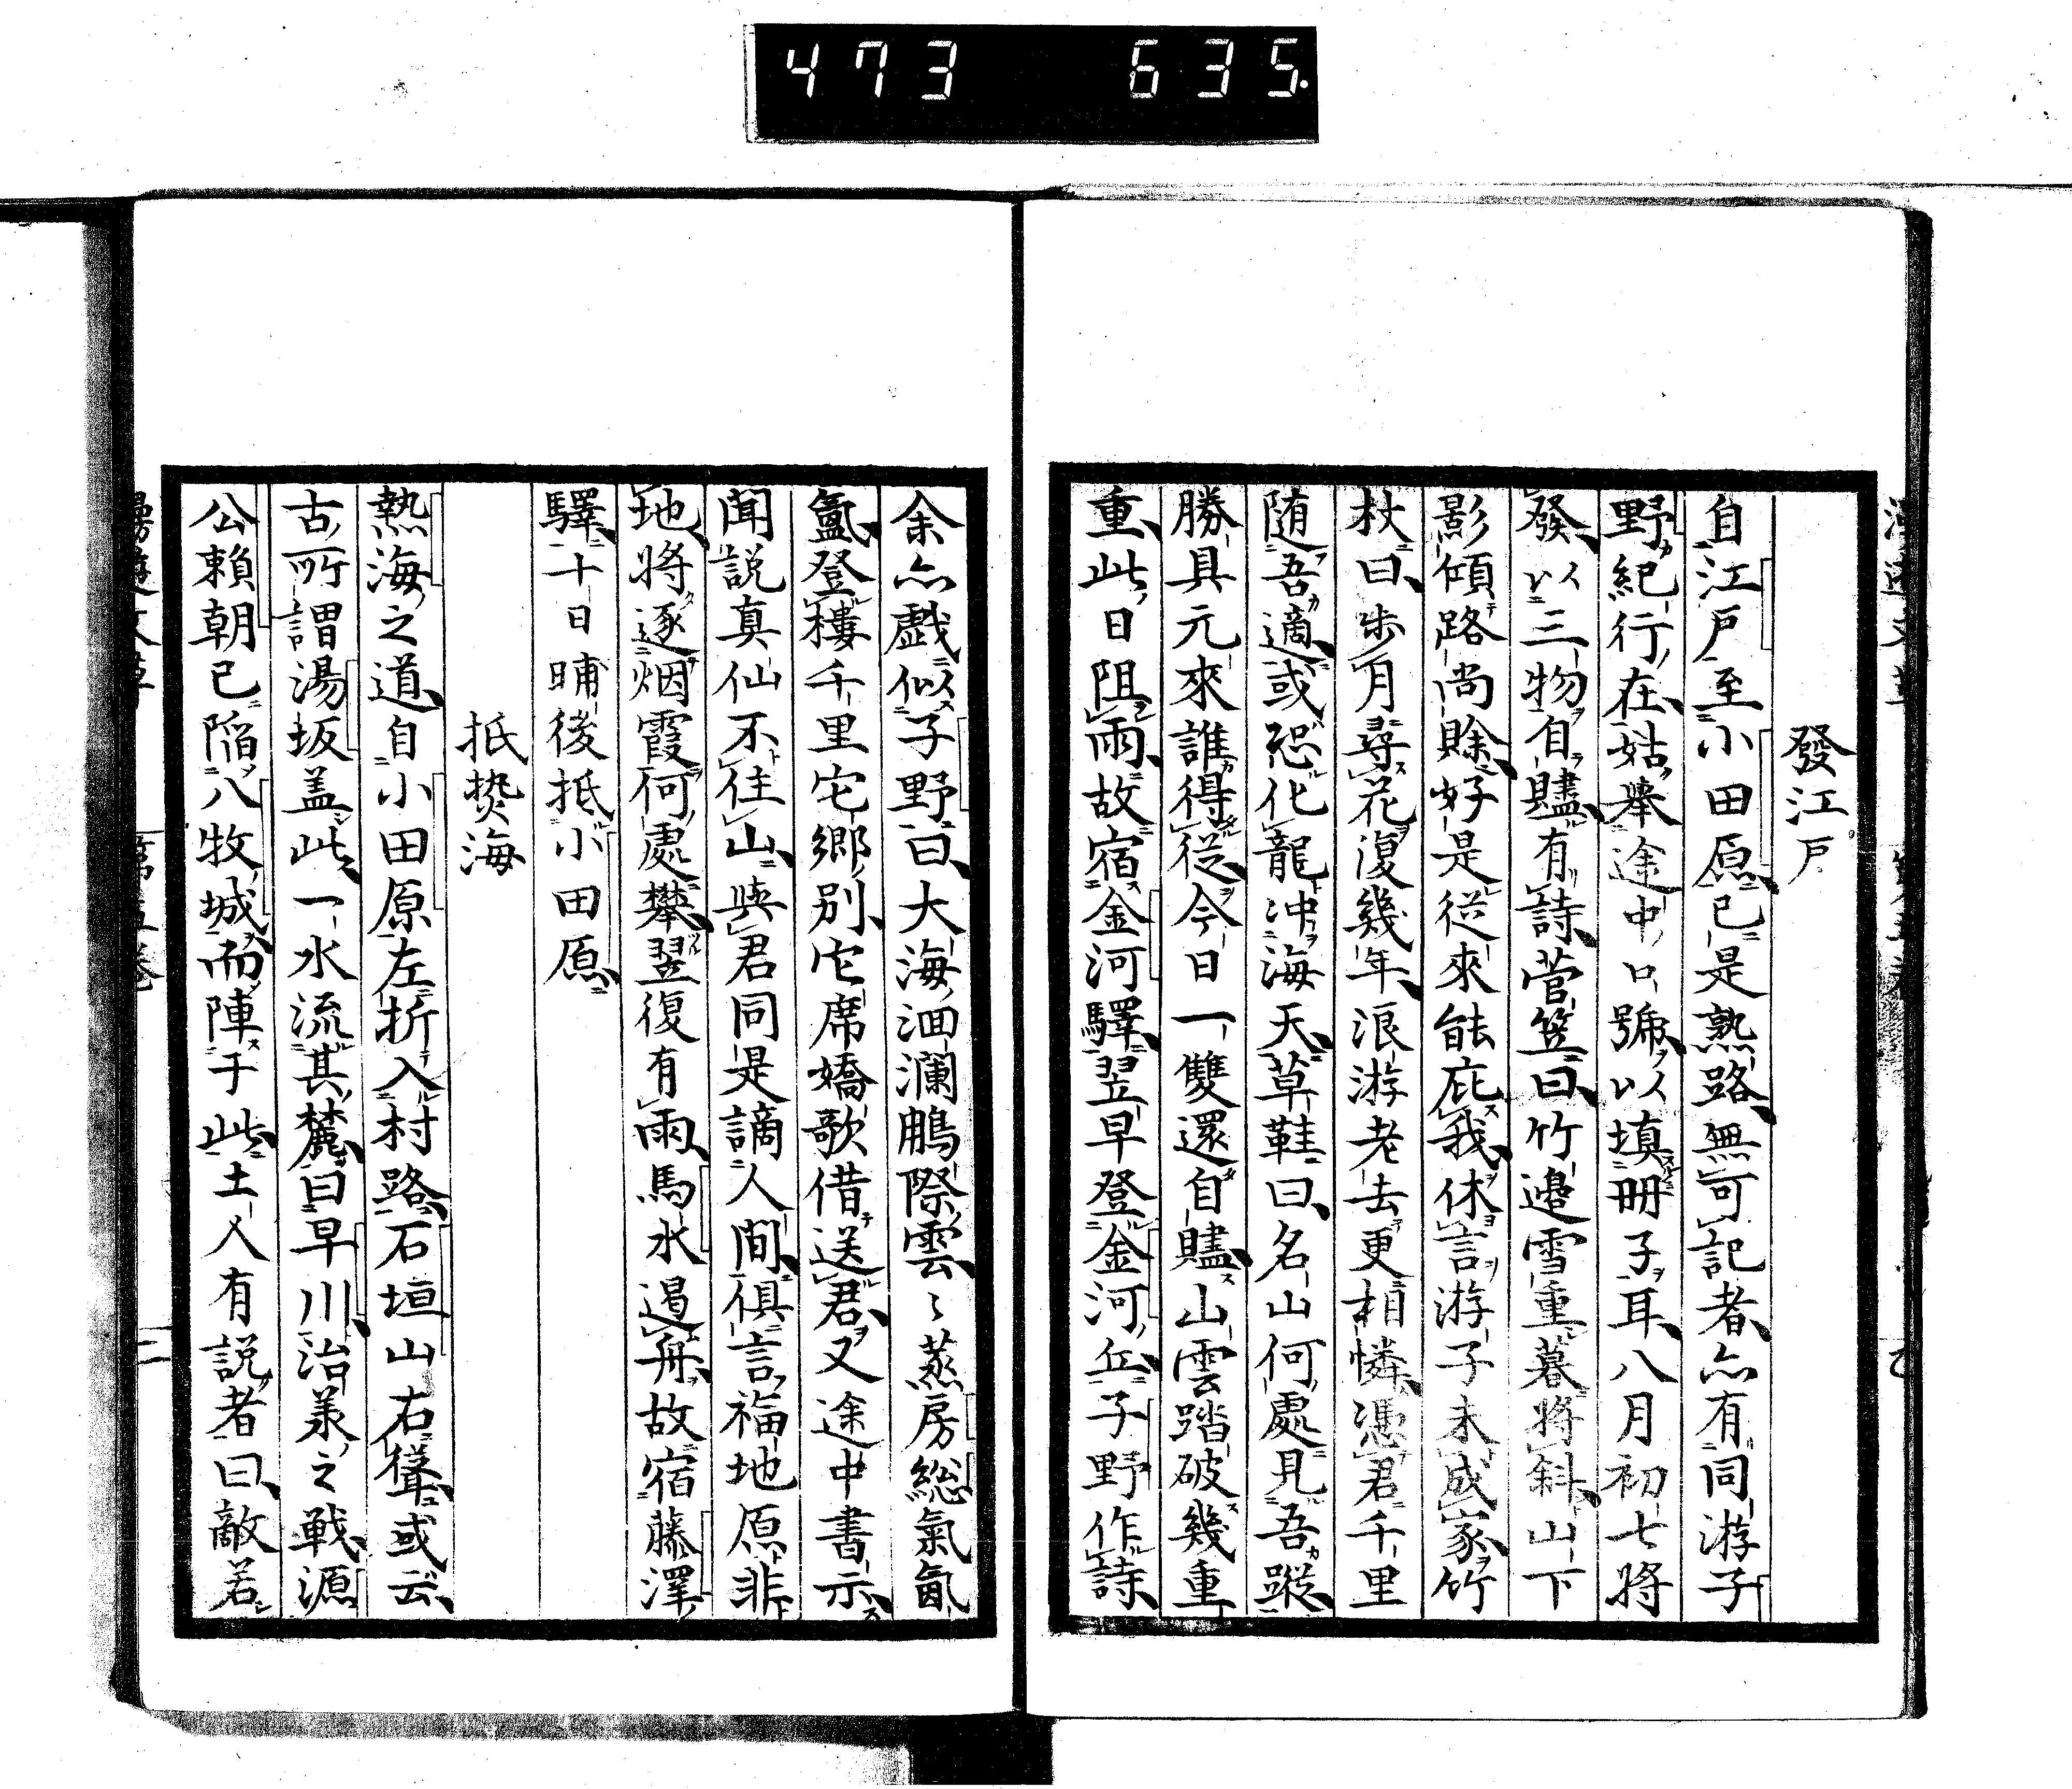 473 635.
發江戸
自江戸至小田原已是熟路無可記者亦有同游子
野紀行在姑舉途中口號以塡冊子耳八月初七將
發以三物自贐有詩菅笠曰竹邉雪重暮將斜山下
影傾路尚賖好是従來能庇我休言游子未成家竹
杖曰歩月尋花復幾年浪游老去更相憐憑君千里
随吾適或恐化龍冲海天草鞋曰名山何處見吾蹤
勝具元來誰得従今日一雙還自贐山雲踏破幾重
重此日阻雨故宿金河驛翌早登金河丘子野作詩
余亦戯似子野曰大海洄瀾鵬際雲〻蒸房総氣氤
氳登樓千里它郷別它席嬌歌借送君又途中書示
聞説真仙不住山與君同是謫人間俱言福地原非
地將逐烟霞何處攀翌復有雨馬水遏舟故宿藤澤
驛十日晡後抵小田原
抵𤍠海
熱海之道自小田原左折入村路石垣山右聳或云
古所謂湯坂盖此一水流其麓曰早川治羕之戦源
公頼朝已陷八牧城而陣于此土人有説者曰敵若
漫遊文草 第五巻 二